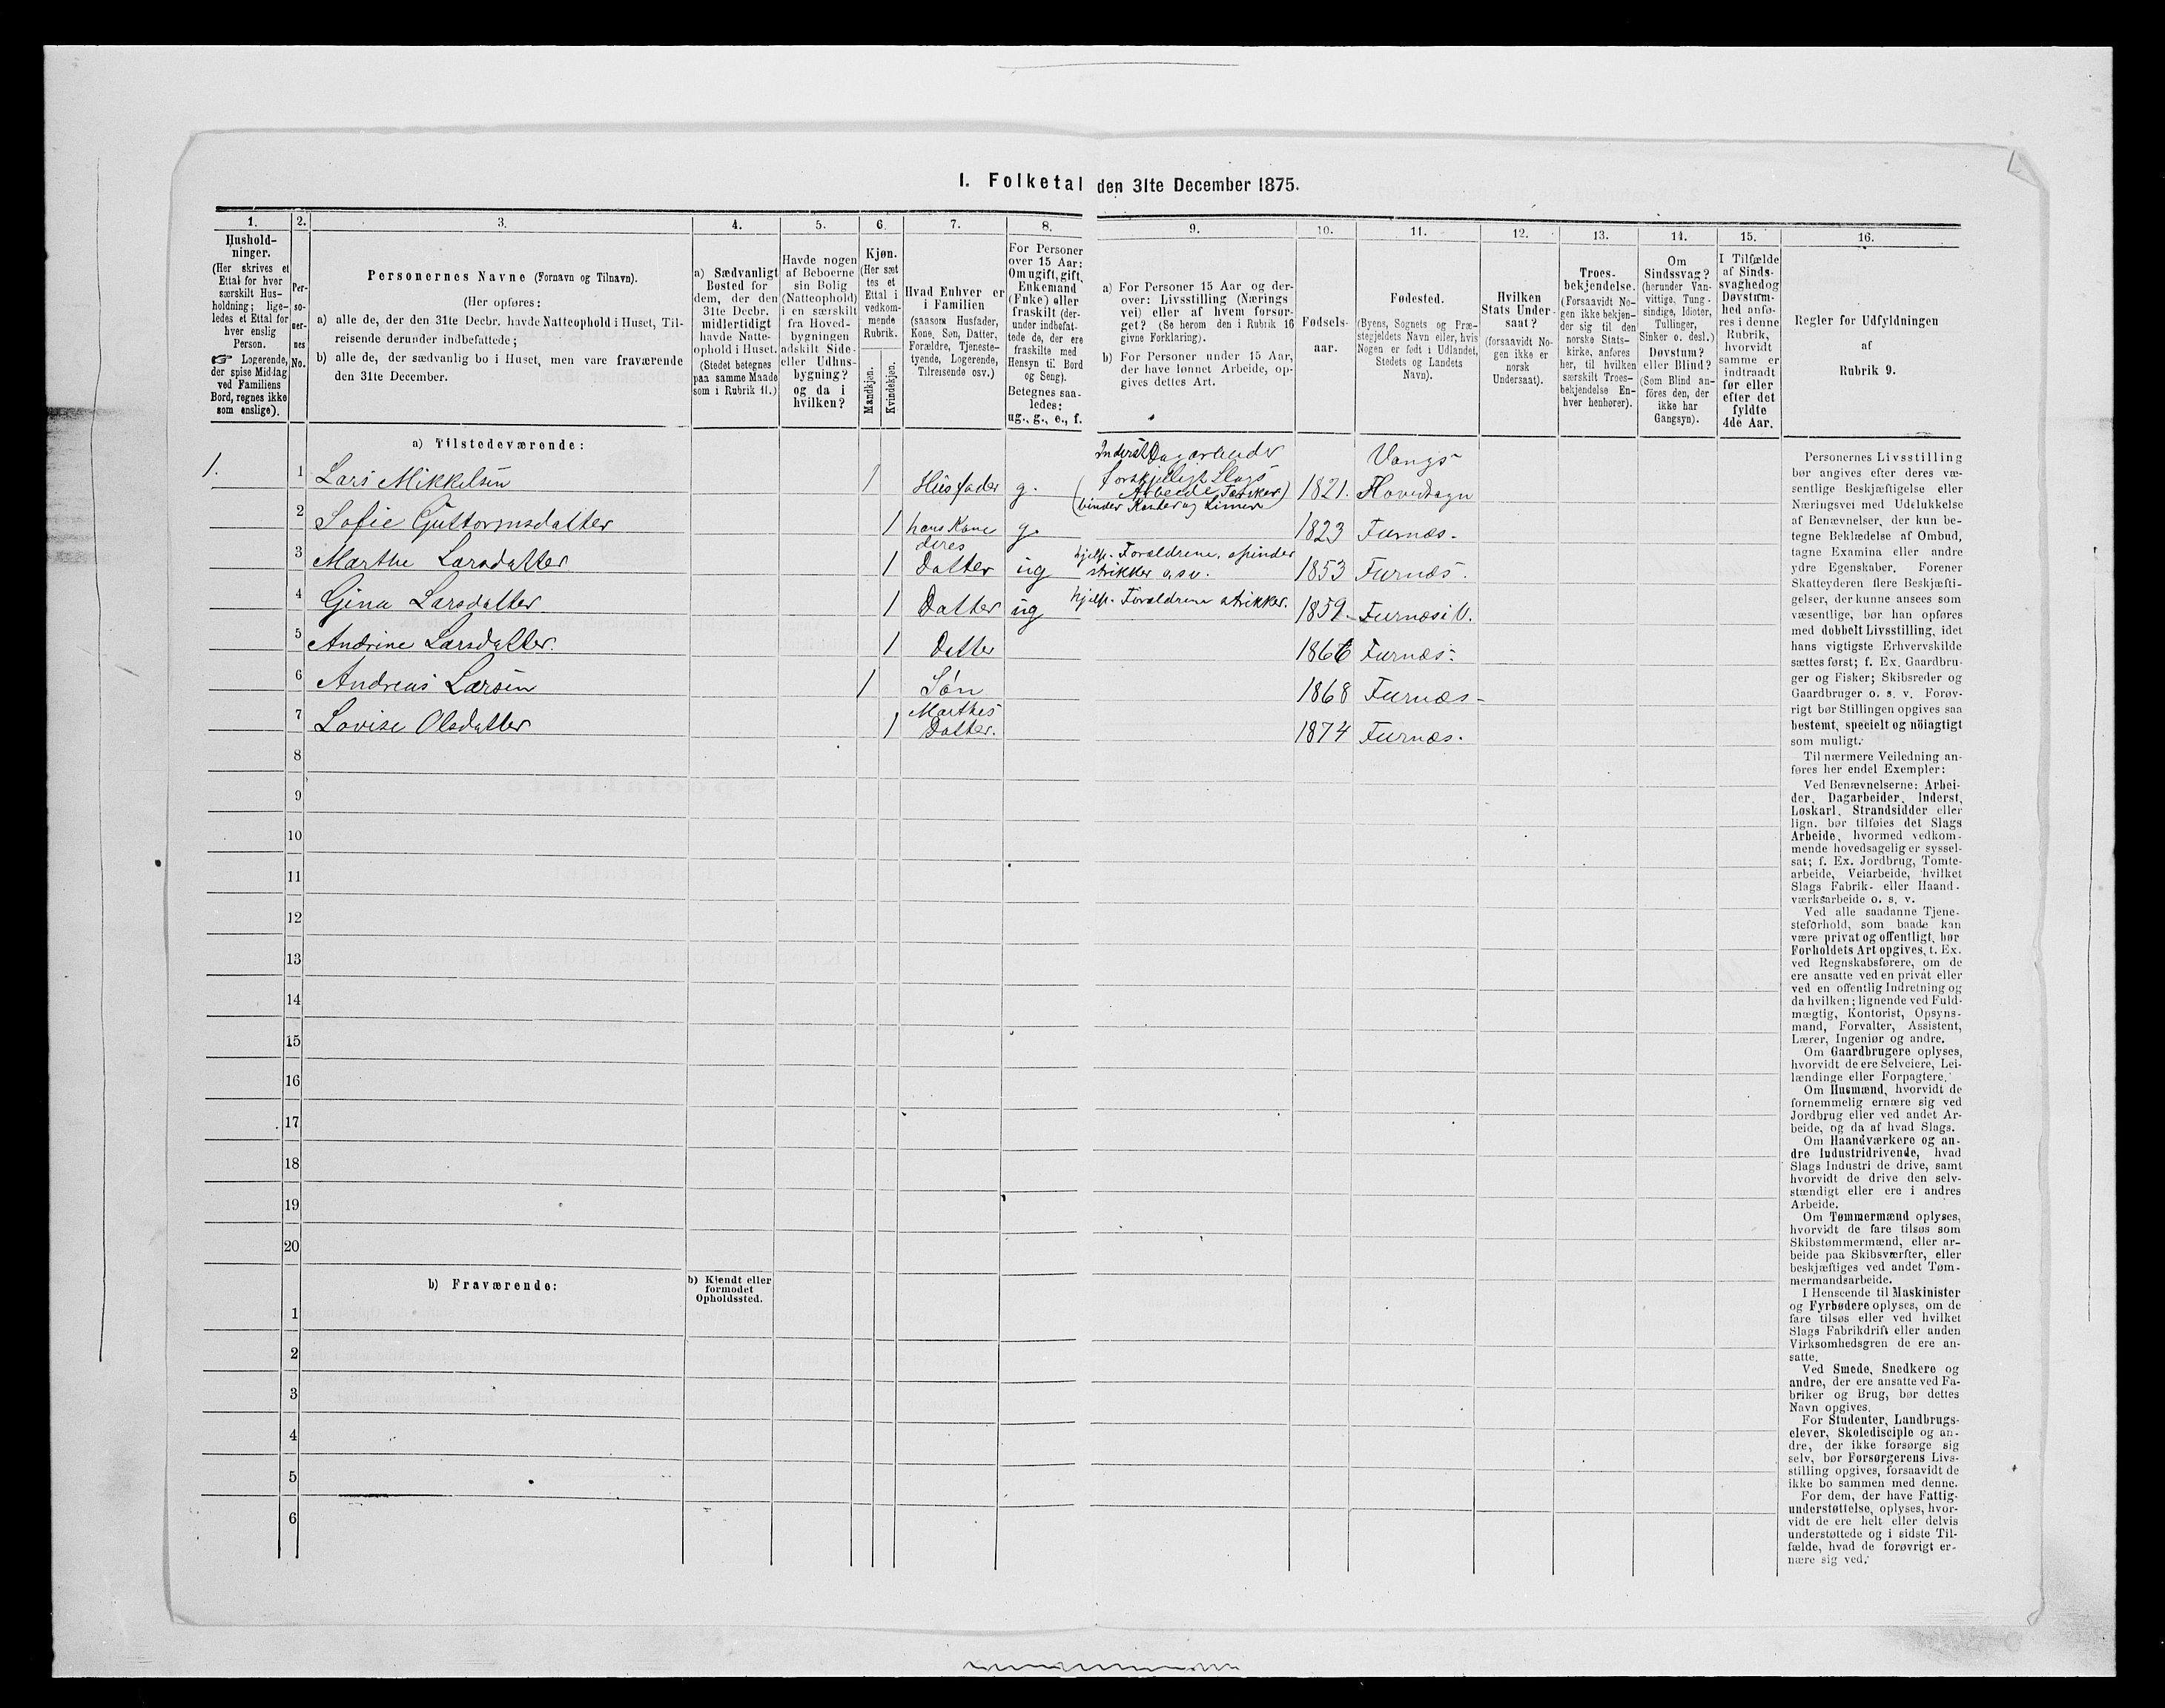 I. Folketal den 31te December 1875.
1. 2. 3. 4. 5. 6. 7. 8. 9. 10. 11. 12. 13. 14. 15. 16.
Hushold-
ninger.
(Her skrives et
Ettal for hver
særskilt Hus-
holdning; lige-
ledes et Ettal for
hver enslig
Person.
☞ Logerende,
der spise Middag
ved Familiens
Bord, regnes ikke
som enslige).
Per-
so-
ner-
nes
No.
Personernes Navne (Fornavn og Tilnavn).
(Her opføres:
a) alle de, der den 31te Decbr. havde Natteophold i Huset, Til-
reisende derunder indbefattede;
b) alle de, der sædvanlig bo i Huset, men vare fraværende
den 31te December.
a) Sædvanligt
Bosted for
dem, der den
31te Decbr.
midlertidigt
havde Natte-
ophold i Huset.
(Stedet betegnes
paa samme Maade
som i Rubrik 11.)
Havde nogen
af Beboerne
sin Bolig
(Natteophold)
i en særskilt
fra Hoved-
bygningen
adskilt Side-
eller Udhus-
bygning?
og da i
hvilken?
Kjøn.
(Her sæt
tes et
Ettal i
vedkom-
mende
Rubrik.
Mandkjøn.
Kvindekjøn.
Hvad Enhver er
i Familien
(saasom Husfader,
Kone, Søn, Datter,
Forældre, Tjeneste-
tyende, Logerende,
Tilreisende osv.)
For Personer
over 15 Aar:
Om ugift, gift,
Enkemand
(Enke) eller
fraskilt (der-
under indbefat-
tede de, der ere
fraskilte med
Hensyn til Bord
og Seng).
Betegnes saa-
ledes:
ug., g., e., f.
a) For Personer 15 Aar og der-
over: Livsstilling (Nærings
vei) eller af hvem forsør-
get? (Se herom den i Rubrik 16
givne Forklaring).
b) For Personer under 15 Aar,
der have lønnet Arbeide, op-
gives dettes Art.
Fødsels-
aar.
Fødested.
(Byens, Sognets og Præ-
stegjeldets Navn eller, hvis
Nogen er født i Udlandet,
Stedets og Landets
Navn).
Hvilken
Stats Under-
saat?
(forsaavidt No-
gen ikke er
norsk
Undersaat).
Troes-
bekjendelse.
(Forsaavidt No-
gen ikke bekjen-
der sig til den
norske Stats-
kirke, anføres
her, til hvilken
særskilt Troes-
bekjendelse En-
hver henhører).
Om
Sindssvag?
(herunder Van-
vittige, Tung-
sindige, Idioter,
Tullinger,
Sinker o. desl.)
Døvstum?
eller Blind?
(Som Blind an-
føres den, der
ikke har
Gangsyn).
I Tilfælde
af Sinds-
svaghed og
Døvstum-
hed anfø-
res i denne
Rubrik,
hvorvidt
samme er
indtraadt
før eller
efter det
fyldte
4de Aar.
Regler for Udfyldningen
af
Rubrik 9.
a) Tilstedeværende:
1. 1 Lars Mikkelsen 1 Husfader g. Inderst Dagarbeider
forskjelligt Slags
Arbeide
(binder Koster og Limer) 1821. Vangs-
Hovedsogn
2 Sofie Guttormsdatter 1 hans Kone g. 1823 Furnæs-
3 Marthe Larsdatter 1 deres
Datter ug hjelp. Forældrene, spinder
strikker o.s.v. 1853 Furnæs.
4 Gina Larsdatter 1 Datter ug hjelp. Forældrene strikker. 1859. Furnæs i V.
5 Andrine Larsdatter. 1 Datter 1866 Furnæs.
6 Andreas Larsen 1 Søn 1868 Furnæs-
7 Lovise Olsdatter 1 Marthes
Datter. 1874 Furnæs.
8
9
10
11
12
13
14
15
16
17
18
19
20
b) Fraværende:
b) Kjendt eller
formodet
Opholdssted.
1
2
3
4
5
6
Personernes Livsstilling
bør angives efter deres væ-
sentlige Beskjæftigelse eller
Næringsvei med Udelukkelse
af Benævnelser, der kun be-
tegne Beklædelse af Ombud,
tagne Examina eller andre
ydre Egenskaber. Forener
Skatteyderen flere Beskjæfti-
gelser, der kunne ansees som
væsentlige, bør han opføres
med dobbelt Livsstilling, idet
hans vigtigste Erhvervskilde
sættes først; f. Ex. Gaardbru-
ger og Fisker; Skibsreder og
Gaardbruger o. s. v. Forøv-
rigt bør Stillingen opgives saa
bestemt, specielt og nøiagtigt
som muligt.
Til nærmere Veiledning an-
føres her endel Exempler:
Ved Benævnelserne: Arbei-
der, Dagarbeider, Inderst,
Løskarl, Strandsidder eller
lign. bør tilføies det Slags
Arbeide, hvormed vedkom-
mende hovedsagelig er syssel-
sat; f. Ex. Jordbrug, Tomte-
arbeide, Veiarbeide, hvilket
Slags Fabrik- eller Haand-
værksarbeide o. s. v.
Ved alle saadanne Tjene-
steforhold, som baade kan
være privat og offentligt, bør
Forholdets Art opgives, t. Ex.
ved Regnskabsførere, om de
ere ansatte ved en privat eller
ved en offentlig Indretning og
da hvilken; lignende ved Fuld-
mægtig, Kontorist, Opsyns-
mand, Forvalter, Assistent,
Lærer, Ingeniør og andre.
Om Gaardbrugere oplyses,
hvorvidt de ere Selveiere, Lei-
lændinge eller Forpagtere.
Om Husmænd, hvorvidt de
fornemmelig ernære sig ved
Jordbrug eller ved andet Ar-
beide, og da af hvad Slags.
Om Haandværkere og an-
dre Industridrivende, hvad
Slags Industri de drive, samt
hvorvidt de drive den selv-
stændigt eller ere i andres
Arbeide.
Om Tømmermænd oplyses,
hvorvidt de fare tilsøs som
Skibstømmermænd, eller ar-
beide paa Skibsværfter, eller
beskjæftiges ved andet Tøm-
mermandsarbeide.
I Henseende til Maskinister
og Fyrbødere oplyses, om de
fare tilsøs eller ved hvilket
Slags Fabrikdrift eller anden
Virksomhedsgren de ere an-
satte.
Ved Smede, Snedkere og
andre, der ere ansatte ved Fa-
briker og Brug, bør dettes
Navn opgives.
For Studenter, Landbrugs-
elever, Skoledisciple og an-
dre, der ikke forsørge sig
selv, bør Forsørgerens Livs-
stilling opgives, forsaavidt de
ikke bo sammen med denne.
For dem, der have Fattig-
understøttelse, oplyses, hvor-
vidt de ere helt eller delvis
understøttede og i sidste Til-
fælde, hvad de forøvrigt er-
nære sig ved.